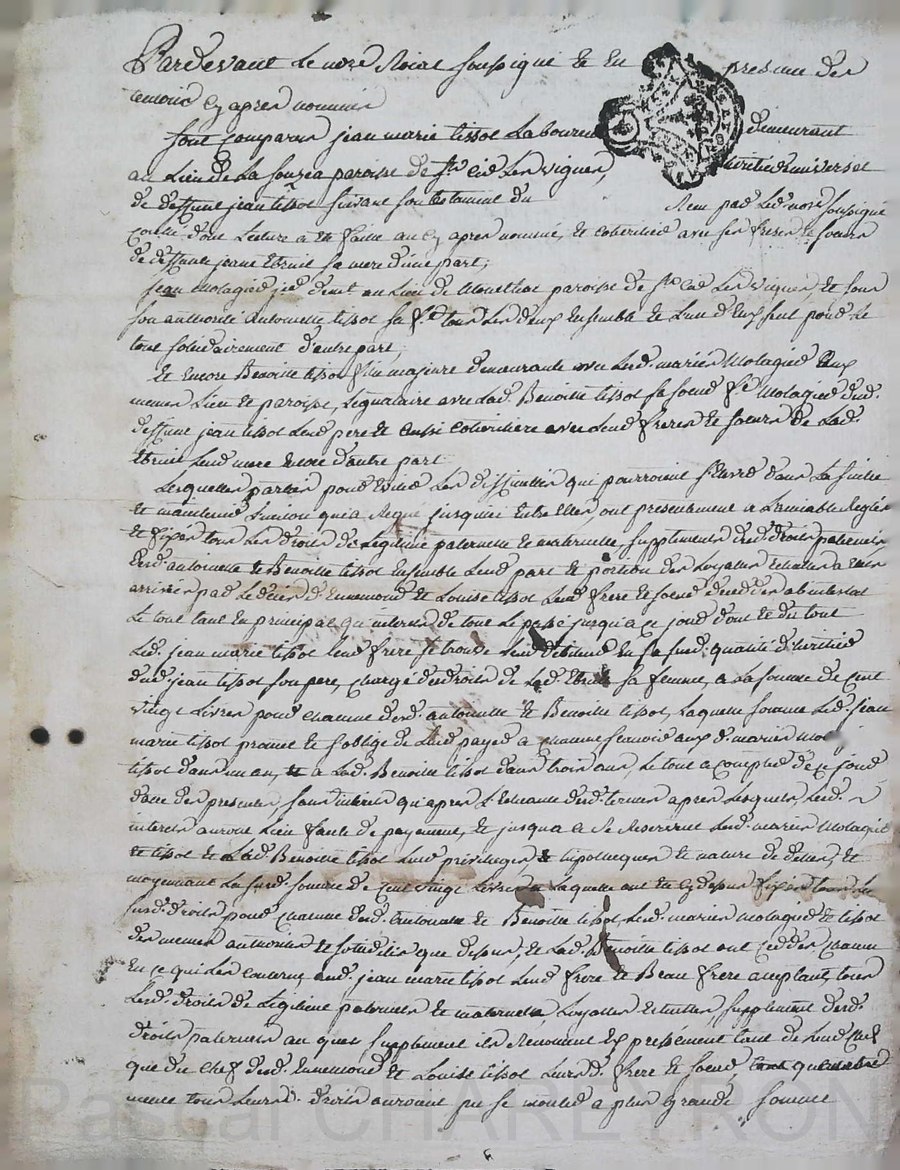 Pardevant le nore Roial soussigné et en presence des
temoins cy apres nommés
sont comparus jean marie tissot Laboureur demeurant
au Lieu de La paroisse de st Les vignes, heritier universel
de deffunt jean tissot suivant son testament du Receu par Led. nore soussigné
controllé dont Lecture a été faite au cy apres nommé, et coheritier avec ses freres et soeurs
de deffunte jeane sa mere d'une part;
jean demt au Lieu de paroisse de st Les vignes, et sous
son authorité antoinette tissot sa fe tous Les deux ensemble et L'un d'eux seul pour le
tout solidairement d'autre part;
et encore Benoitte tissot fille majeure demeurante avec Lesd. mariés
memes Lieu et paroisse, Legataire avec Lad. tissot sa soeur fe dud.
deffunt jean tissot Leur pere et aussi coheritiere avec Leurs freres et soeurs de Lad.
Leur mere encore d'autre part
Lesquelles parties pour eviter Les difficultés qui pourroient dans La suitte
et maintenir L'union qui a Regné jusqu'ici entre elles, ont presentement a L'amiable Reglé
et fixé tous Les droits de Legitime paternelle et maternelle, supplement desd. droits paternels
desd. antoinette et Benoitte tissot ensemble Leur part et portion des a elles
arrivées par Le décès d'Ennemond et Louise tissot Leurs frere et soeur decedés abintestat
Le tout tant en principal qu'interets de tout Le passé jusqu'a ce jour dont et du tout
Led. jean marie tissot Leur frere se trouve Leur debiteur en sa susd. qualité d'heritier
dud. jean tissot son pere, chargé des droits de Lad. sa femme, a La somme de cent
vingt Livres pour chacune desd. antoinette et Benoitte tissot, Laquelle somme Led. jean
marie tissot promet et s'oblige de Leur payer a chacune scavoir aux d. mariés
tissot dans un an, et a Lad. Benoitte tissot dans trois ans, Le tout a compter de ce jour
date des presentes, sans interets qu'apres L'echeance desd. termes apres Lesquels Lesd.
interets auront Lieu faute de payement, et jusqu'a ce se Reservent Lesd. mariés
et tissot et Lad. Benoitte tissot Leurs privileges et hipotheques et nature de dettes, et
moyennant La susd. somme de cent vingt Livres a Laquelle ont été cy dessus fixés tous Les
susd. droits pour chacune desd. antoinette et Benoitte tissot, Lesd. mariés et tissot
des memes authorité et solidité que dessus, et Lad. Benoitte tissot ont cedé chacun
en ce qui Les concerne, aud. jean marie tissot Leur frere et Beau frere acceptant, tous
Lesd. droits de Legitime paternelle et maternelle, supplement desd.
droits paternels au quel supplement ils Renoncent expressément tant de Leur chef
que du chef desd. Ennemond et Louise tissot Leursd. frere et soeur,
meme tous Leursd. droits auroient pu se monter a plus grande somme
Pascal CHAREYRON